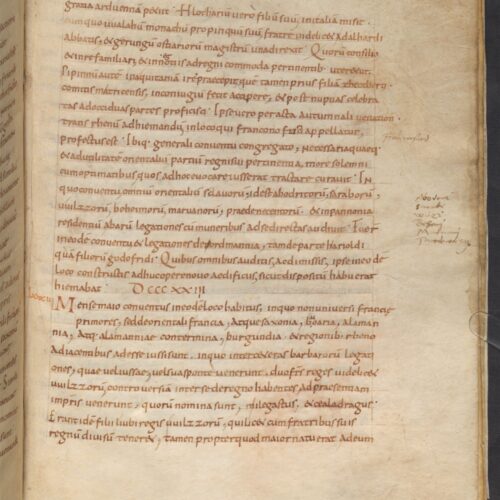 gratia arduennā petiit. Hlothariū vero filiū suū, initaliā misit
cumquo uualahū monachū propinquū suū fratrē uidelicet adalhardi
abbatis, & gerungū ostiariorū magistrū una direxit. Quorū consilio
& inrefamiliari, & innegotiis adregni commoda pertinentib; uteretur.
Pippinū autē inaquitaniā ire praecepit, quē tamen prius filiā theodberti
comitis matricensis, inconiugiū fecit accipere, & post nuptias celebra
tas adocciduas partes proficisci. Ipse uero peracta autumnali uenation
trans rhenū adhiemandū, inloco qui franconofurd appellatur,
profectus est. Ibiq; generali conuentu congregato, necessaria quaeq;
& adutilitatē orientaliū partiū regni sui pertinentia, more solemni
cum optimatibus quos adhoc euocare iusserat tractare curauit. In
quo conuentu, omniū orientaliū sclauorū, id est abodritorū, soraborū,
uuilzzorū, beheimorū, maruanorū, praedenecentorū, & inpannonia
residentiū abarū legationes cū muneribus adsedirectas audiuit. Fuer
in eo de conuentu & legationes denordmannia, tam departe harioldi
quā filiorū godofridi. Quibus omnibus auditis, acdimissis, ipse in eo dē
loco constructis adhoc opere nouo aedificiis, sicut dispositū habuerat
hiemabat. DCCCXXIII
Mense maio conuentus in eodē loco habitus, inquo nonuniuersi franciē
primores, sed deorientali francia, atque saxonia, baioaria, alaman
nia, atq; alamanniae contermina, burgundia, & regionib; rheno
adiacentibus adesse iussi sunt. inquo inter ceteras barbarorū legati
ones, quae uel iussae, uel sua sponte uenerunt, duo fratres reges uidelicet
uuilzzorū, controuersiā inter se deregno habentes ad praesentiam
impris uenerunt, quorū nomina sunt, milegastus, & cealadragus.
Erant idē filii liubi regis uuilzorū, qui licet cum fratribus suis
regnū diuisū teneret, tamen propter quod maior natu erat ad eum